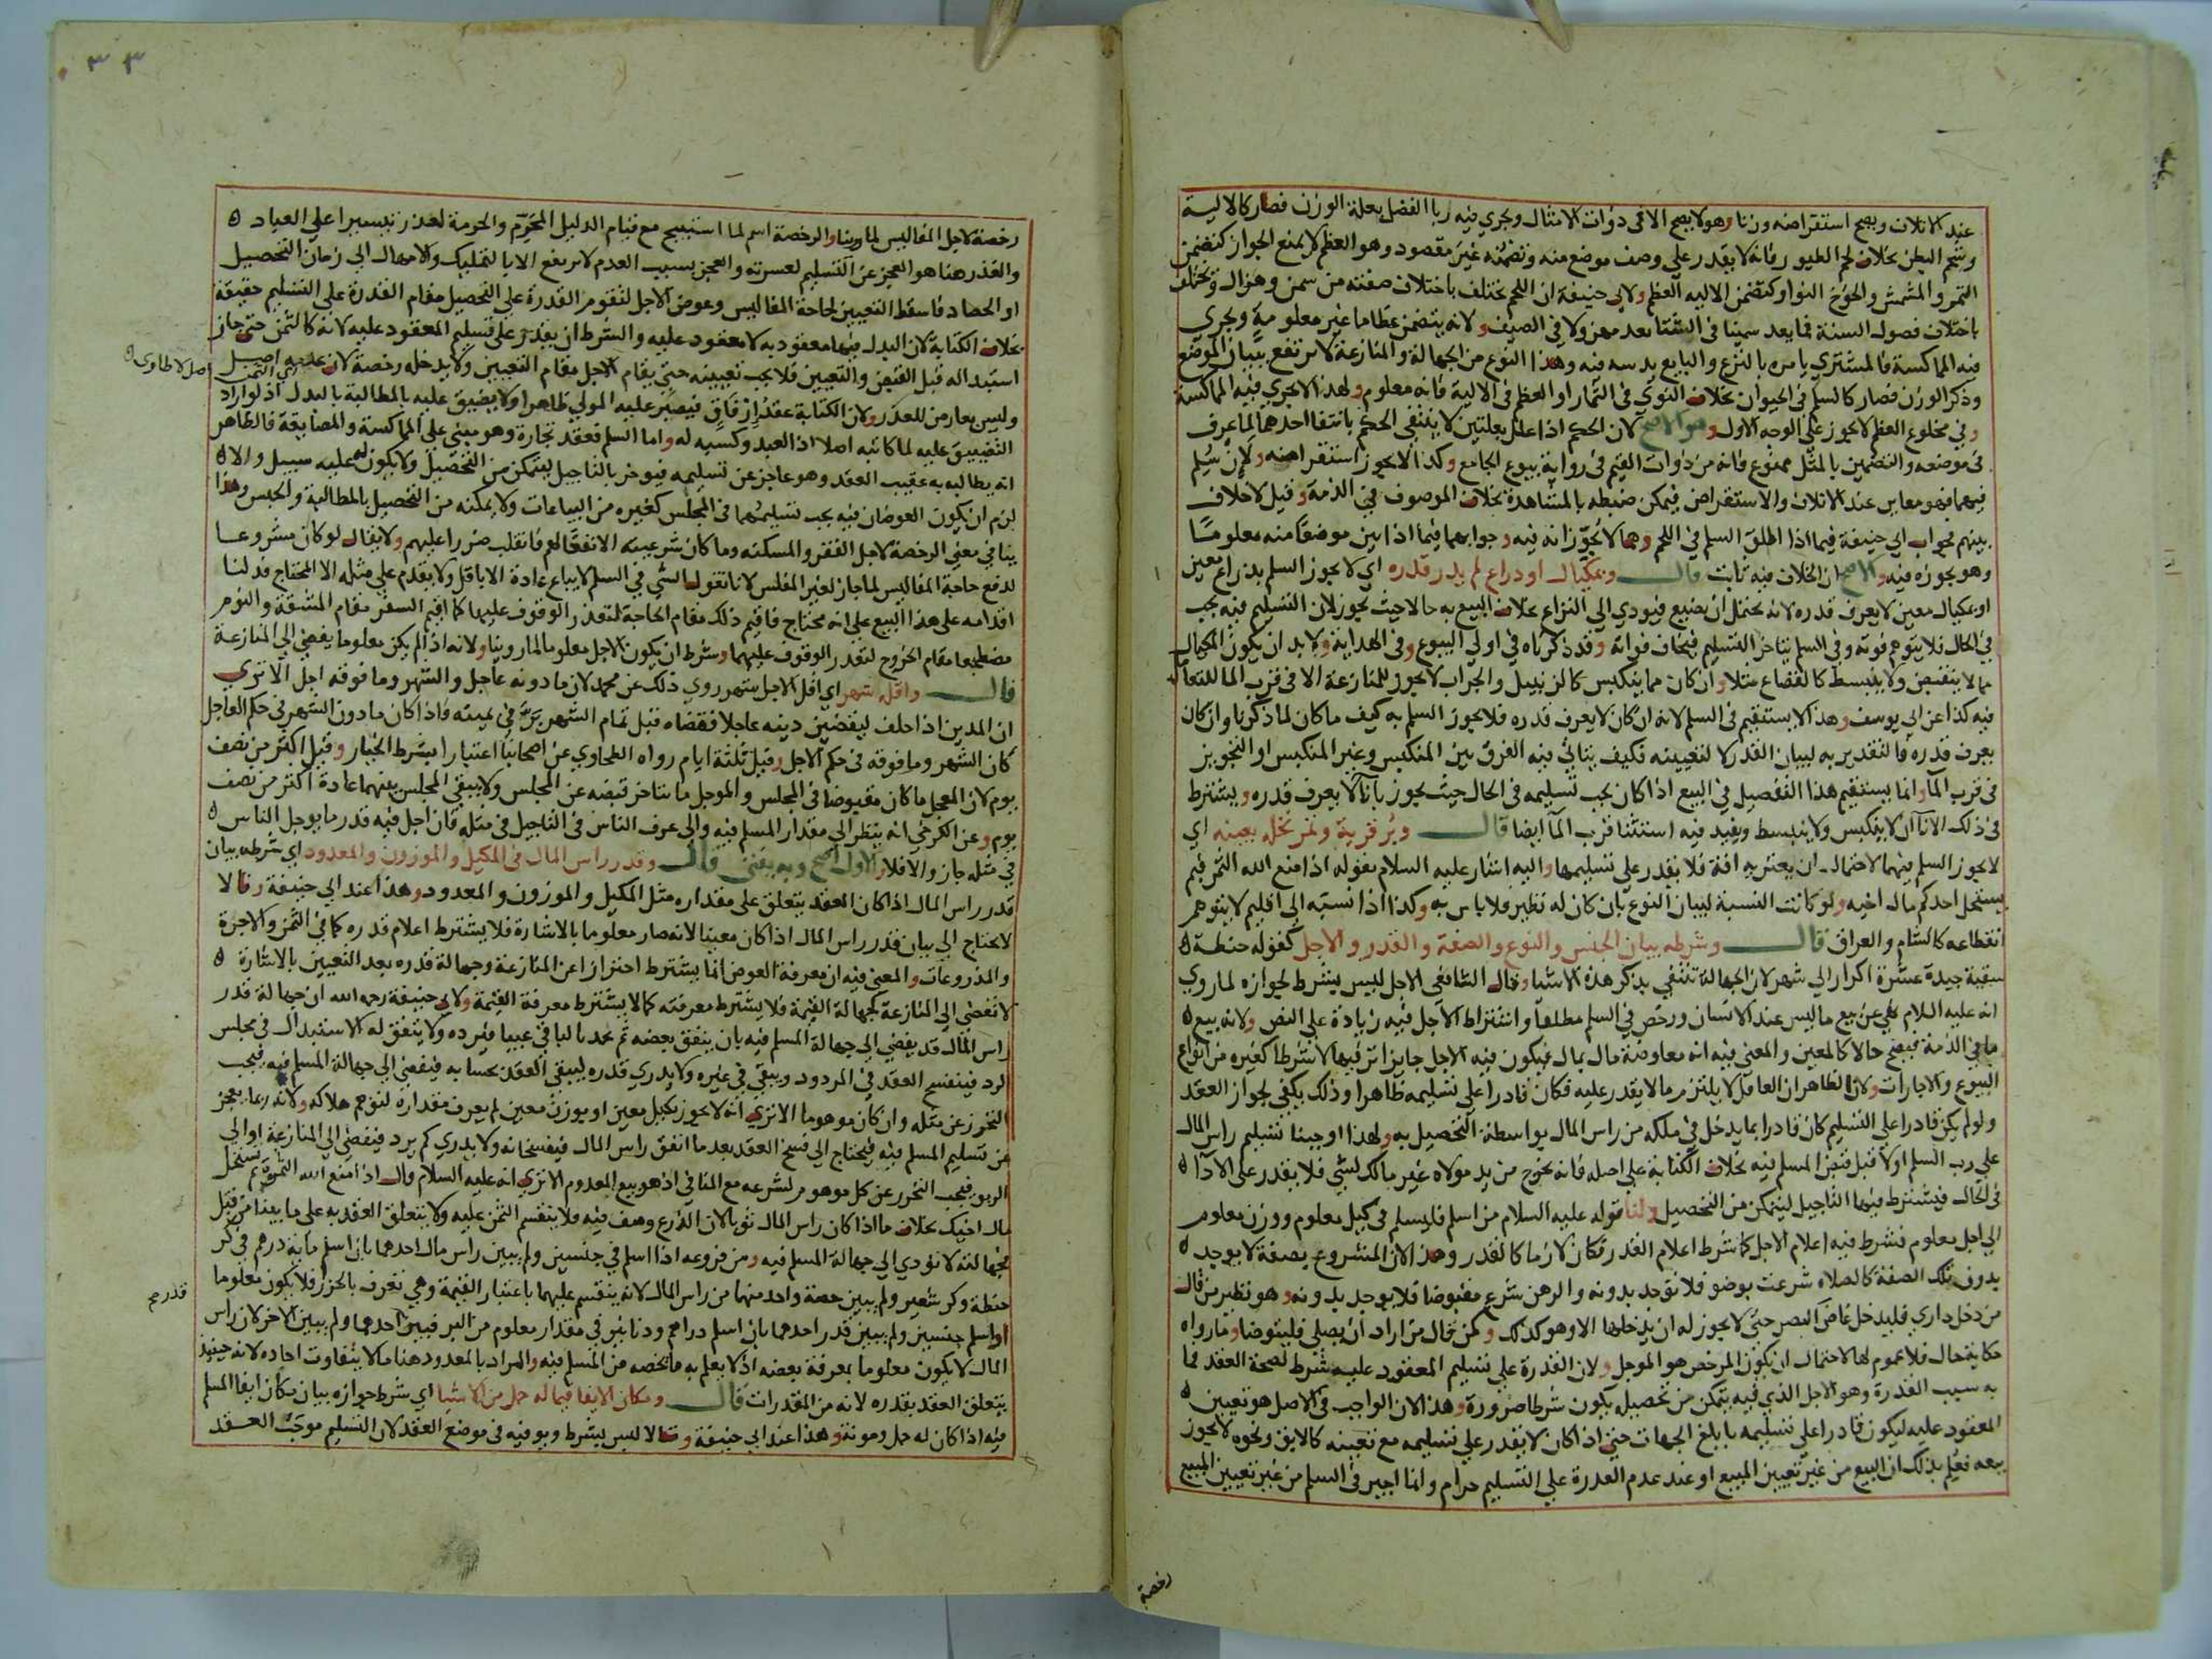 عند الاتلاف ويصح استقراضه وزنا وهو لا يصح الا في ذوات الامثال ويجري فيه ربا الفضل بعلة الوزن فصار كالالية
وشحم البطن بخلاف لحم الطيور فانه لا يقدر على وصف موضع منه وتضمنه غير مقصود وهو العظم لا يمنع الجواز كتضمن
التمر والمشمش والخوخ النوا وكتضمن الاليه العظم ولابي حنيفة ان اللحم يختلف باختلاف صفته من سمن وهزال وتختلف
باختلاف فصول السنة فما يعد سمينا في الشتا يعد مهزولا في الصيف ولانه يتضمن عظاما غير معلومة ويجري
فيه المماكسة فالمشتري يامره بالنزع والبايع يدسه فيه وهذا النوع من الجهالة والمنازعة لا يرتفع ببيان الموضع
وذكر الوزن فصار كالسلم في الحيوان بخلاف النوى في الثمار او العظم في الالية فانه معلوم ولهذا لا يجري فيه المماكسة
وفي مخلوع العظم لا يجوز على الوجه الاول وهو الاصح لان الحكم اذا علل بعلتين لا ينتفي الحكم بانتفا احدهما لما عرف
في موضعه والتضمين بالمثل ممنوع فانه من ذوات القيم في رواية بيوع الجامع وكذا لا يجوز استقراضه ولان سلم
فيهما فهو معاين عند الاتلاف والاستقراض فيمكن ضبطه بالمشاهدة بخلاف الموصوف في الذمة وقيل لا خلاف
بينهم فجواب ابي حنيفة فيما اذا اطلق السلم في اللحم وهما لا يجوزانه فيه وجوابهما فيما اذا بين موضعا منه معلوما
وهو يجوزه فيه والاصح ان الخلاف فيه ثابت قال وبمكيال او ذراع لم يدر قدره اي لا يجوز السلم بذراع معين
او بمكيال معين لا يعرف قدره لانه يحتمل ان يضيع فيودي الى النزاع بخلاف البيع به حالا حيث يجوز لان التسليم فيه يجب
في الحال فلا يتوهم فوته وفي السلم يتاخر التسليم فيخاف فواته وقد ذكرناه في اول البيوع وفي الهداية ولا بد ان يكون المكيال
مما لا ينقبض ولا ينبسط كالقصاع مثلا وان كان مما ينكبس كالزنبيل والجراب لا يجوز للمنازعة الا في قرب الما للتعامل
فيه كذا عن ابي يوسف وهذا لا يستقيم في السلم لانه ان كان لا يعرف قدره فلا يجوز السلم به كيف ما كان لما ذكرنا وان كان
يعرف قدره فالتقدير به لبيان القدر لا لتعيينه فكيف يتاتى فيه الفرق بين المنكبس وغير المنكبس او التجويز
في قرب الما وانما يستقيم هذا التفصيل في البيع اذا كان يجب تسليمه في الحال حيث يجوز باناء لا يعرف قدره ويشترط
في ذلك الانا ان لا ينكبس ولا ينبسط ويفيد فيه استثنا قرب الما ايضا قال وبر قرية وتمر نخلة بعينه اي
لا يجوز السلم فيهما لاحتمال ان يعتريه افة فلا يقدر على تسليمها واليه اشار عليه السلام بقوله اذا منع الله الثمر فبم
يستحل احدكم مال اخيه ولو كانت النسبة لبيان النوع بان كان له نظير فلا باس به وكذا اذا نسبه الى اقليم لا يتوهم
انقطاعه كالشام والعراق قال وشرطه بيان الجنس والنوع والصفة والقدر والاجل كقوله حنطة
سقية جيدة عشرة اكرار الى شهر لان الجهالة تنتفي بذكر هذه الاشيا وقال الشافعي الاجل ليس بشرط لجوازه لما روي
انه عليه السلام نهى عن بيع ما ليس عند الانسان ورخص في السلم مطلقا واشتراط الاجل فيه زيادة على النص ولانه بيع
ما في الذمة فيصح حالا كالمعين والمعنى فيه انه معاوضة مال بمال فيكون فيه الاجل جايزا ترفيها لا شرطا كغيره من انواع
البيوع والاجارات ولان الظاهر ان العاقل لا يلتزم ما لا يقدر عليه فكان قادرا على تسليمه ظاهرا وذلك يكفي لجواز العقد
ولو لم يكن قادرا على التسليم كان قادرا بما يدخل في ملكه من راس المال بواسطة التحصيل به ولهذا اوجبنا تسليم راس المال
على رب السلم اولا قبل قبض المسلم فيه بخلاف الكتابة على اصله فانه يخرج من يد مولاه غير مالك لشي فلا يقدر على الادا
في الحال فيشترط فيها التاجيل ليتمكن من التحصيل ولنا قوله عليه السلام من اسلم فليسلم في كيل معلوم ووزن معلوم
الى اجل معلوم فشرط فيه اعلام الاجل كما شرط اعلام القدر فكان لازما كالقدر وهذا لان المشروع بصفة لا يوجد
بدون تلك الصفة كالصلاه شرعت بوضو فلا توجد بدونه والرهن شرع مقبوضا فلا يوجد بدونه وهو نظير من قال
من دخل داري فليدخل غاض البصر حتى لا يجوز له ان يدخلها الا وهو كذلك وكمن قال من اراد ان يصلي فليتوضا وما رواه
حكاية حال فلا عموم لها لاحتمال ان يكون المرخص هو الموجل ولان القدرة على تسليم المعقود عليه شرط لصحة العقد فما
به سبب القدرة وهو الاجل الذي فيه يتمكن من تحصيل يكون شرطا ضرورة وهذا لان الواجب في الاصل هو تعيين
المعقود عليه ليكون قادرا على تسليمه بابلغ الجهات حتى اذا كان لا يقدر على تسليمه مع تعيينه كالابق ونحوه لا يجوز
بيعه فعلم بذلك ان البيع من غير تعيين المبيع او عند عدم القدرة على التسليم حرام وانما اجيز في السلم من غير تعيين المبيع
رخصة
٣٣
رخصة لاجل المفاليس لما روينا والرخصة اسم لما استبيح مع قيام الدليل المحرم والحرمة لعذر تيسيرا على العباد
والعذر هنا هو العجز عن التسليم لعسرته والعجز بسبب العدم لا يرتفع الا بالتمليك والامهال الى زمان التحصيل
او الحصاد فاسقط التعيين لحاجة المفاليس وعوض الاجل لتقوم القدرة على التحصيل مقام القدرة على التسليم حقيقة
بخلاف الكتابة لان البدل فيها معقود به لا معقود عليه والشرط ان يقدر على تسليم المعقود عليه لانه كالثمن حتى جاز
استبداله قبل القبض والتعيين فلا يجب تعيينه حتى يقام الاجل مقام التعيين ولا يدخله رخصة لان عدمه في الثمن اصيل
اصل لا طاري
وليس بعارض للعذر ولان الكتابة عقد ارفاق فيصبر عليه المولى ظاهرا ولا يضيق عليه بالمطالبة بالبدل اذ لو اراد
التضييق عليه لما كاتبه اصلا اذ العبد وكسبه له واما السلم فعقد تجارة وهو مبني على المماكسة والمضايقة فالظاهر
انه يطالبه به عقيب العقد وهو عاجز عن تسليمه فيوخر بالتاجيل ليتمكن من التحصيل ولا يكون له عليه سبيل والا
لزم ان يكون العوضان فيه يجب تسليمهما في المجلس كغيره من البياعات ولا يمكنه من التحصيل بالمطالبة والحبس وهذا
ينافي معنى الرخصة لاجل الفقر والمسكنه وما كان شرعيته الا نفعا لهم فانقلب ضررا عليهم ولا يقال لو كان مشروعا
لدفع حاجة المفاليس لما جاز لغير المفلس لانا نقول الشي في السلم لا يباع عادة الا باقل ولا يقدم على مثله الا المحتاج فدلنا
اقدامه على هذا البيع على انه محتاج فاقيم ذلك مقام الحاجة لتعذر الوقوف عليها كما اقيم السفر مقام المشقة والنوم
مضطجعا مقام الخروج لتعذر الوقوف عليهما وشرط ان يكون الاجل معلوما لما روينا ولانه اذا لم يكن معلوما يفضي الى المنازعة
قال واقله شهر اي اقل الاجل شهر روي ذلك عن محمد لان ما دونه عاجل والشهر وما فوقه اجل الا ترى
ان المدين اذا حلف ليقضين دينه عاجلا فقضاه قبل تمام الشهر بر في يمينه فاذا كان ما دون الشهر في حكم العاجل
كان الشهر وما فوقه في حكم الاجل وقيل ثلثة ايام رواه الطحاوي عن اصحابنا اعتبارا بشرط الخيار وقيل اكثر من نصف
يوم لان المعجل ما كان مقبوضا في المجلس والموجل ما يتاخر قبضه عن المجلس ولا يبقى المجلس بينهما عادة اكثر من نصف
يوم وعن الكرخي انه ينظر الى مقدار المسلم فيه والى عرف الناس في التاجيل في مثله فان اجل فيه قدر ما يوجل الناس
في مثله جاز والا فلا والاول اصح وبه يفتى قال وقدر راس المال في المكيل والموزون والمعدود اي شرطه بيان
قدر راس المال اذا كان العقد يتعلق على مقداره مثل المكيل والموزون والمعدود وهذا عند ابي حنيفة وقالا
لا يحتاج الى بيان قدر راس المال اذا كان معينا لانه صار معلوما بالاشارة فلا يشترط اعلام قدره كما في الثمن والاجرة
والمذروعات والمعنى فيه ان معرفة العوض انما يشترط احترازا عن المنازعة وجهالة قدره بعد التعيين بالاشارة
لا تفضي الى المنازعة كجهالة القيمة فلا يشترط معرفته كما لا يشترط معرفة القيمة ولابي حنيفة رحمه الله ان جهالة قدر
راس المال قد يفضي الى جهالة المسلم فيه بان ينفق بعضه ثم يجد بالباقي عيبا فيرده ولا يتفق له الاستبدال في مجلس
الرد فينفسخ العقد في المردود ويبقى في غيره ولا يدري قدره ليبقى العقد بحسابه فيفضي الى جهالة المسلم فيه فيجب
التحرز عن مثله وان كان موهوما الا ترى انه لا يجوز بكيل معين او بوزن معين لم يعرف مقداره لتوهم هلاكه ولانه ربما يعجز
عن تسليم المسلم فيه فيحتاج الى فسخ العقد بعد ما انفق راس المال فيفسخانه ولا يدري كم يرد فيفضي الى المنازعة او الى
الربو فيجب التحرز عن كل موهوم لشرعه مع المنافي اذ هو بيع المعدوم الا ترى انه عليه السلام قال اذا منع الله الثمرة بم تستحل
مال اخيك بخلاف ما اذا كان راس المال ثوبا لان الذرع وصف فيه فلا ينقسم الثمن عليه ولا يتعلق العقد به على ما بينا من قبل
فجهالته لا تودي الى جهالة المسلم فيه ومن فروعه اذا اسلم في جنسين ولم يبين راس مال احدهما بان اسلم ماية درهم في كر
حنطة وكر شعير ولم يبين حصة واحد منهما من راس المال لانه ينقسم عليهما باعتبار القيمة وهي تعرف بالحزر فلا يكون معلوما
او اسلم جنسين ولم يبين قدر احدهما بان اسلم دراهم ودنانير في مقدار معلوم من البر فبين احدهما ولم يبين الاخر لان راس
قدر صح
المال لا يكون معلوما بمعرفة بعضه اذ لا يعلم به ما يخصه من المسلم فيه والمراد بالمعدود هنا ما لا يتفاوت احاده لانه حينئذ
يتعلق العقد بقدره لانه من المقدرات قال ومكان الايفا فيما له حمل من الاشيا اي شرط جوازه بيان مكان ايفا المسلم
فيه اذا كان له حمل ومونة وهذا عند ابي حنيفة وقالا ليس بشرط ويوفيه في موضع العقد لان التسليم موجب العقد